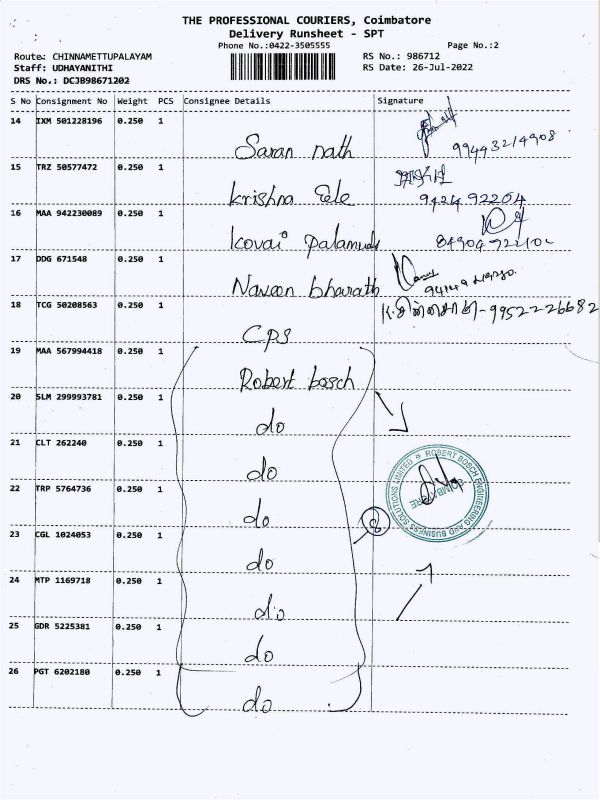 THE PROFESSIONAL COURIERS, Coimbatore
Delivery Runsheet - SPT
Phone No.:0422-3505555
Page No.:2
Route: CHINNAMETTUPALAYAM
RS No.: 986712
Staff: UDHAYANITHI
RS Date: 26-Jul-2022
DRS No.: DCJB98671202
S No Consignment No Weight PCS Consignee Details Signature
14 IXM 501228196 0.250 1
Saran nath 99443214908
15 TRZ 50577472 0.250 1
krishna 9424 92204
16 MAA 942230089 0.250 1
Kovai Palamudir
17 DDG 671548 0.250 1
Naveen bharath
18 TCG 50208563 0.250 1
CPS 99522 26682
19 MAA 567994418 0.250 1
Robert bosch
20 SLM 299993781 0.250 1
do
21 CLT 262240 0.250 1
do
22 TRP 5764736 0.250 1
do
8
23 CGL 1024053 0.250 1
do
24 MTP 1169718 0.250 1
do
25 GDR 5225381 0.250 1
do
26 PGT 6202180 0.250 1
do
ROBERT BOSCH ENGINEERING AND BUSINESS SOLUTIONS LIMITED
COIMBATORE